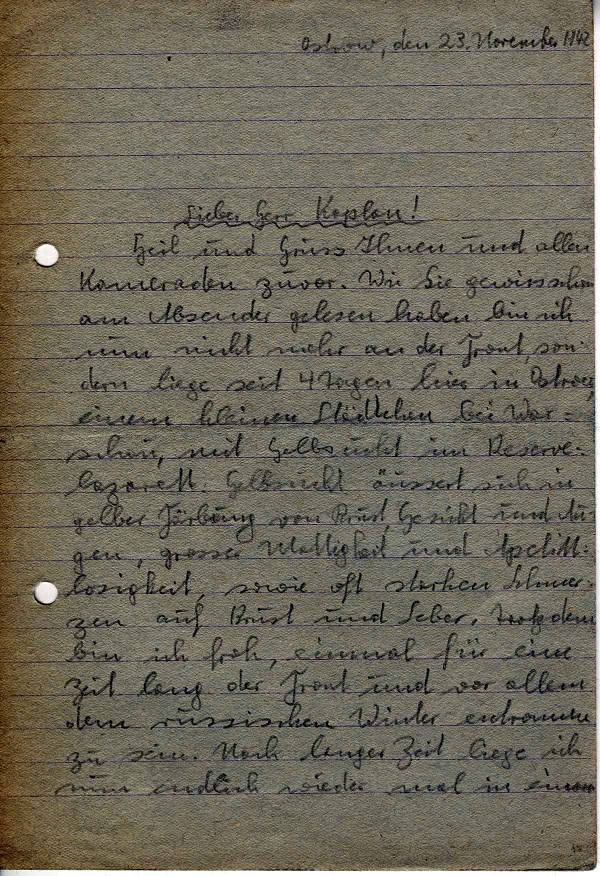 Ostrow, den 23. November 1942
Lieber Herr Kaplan!
Heil und Gruss Ihnen und allen
Kameraden zuvor. Wie Sie gewiss schon
am Absender gelesen haben bin ich
nun nicht mehr an der Front, son-
dern liege seit 4 Tagen hier in Ostrow,
einem kleinen Städtchen bei War-
schau, mit Gelbsucht im Reserve-
lazarett. Gelbsucht äussert sich in
gelber Färbung von Brust, Gesicht und Au-
gen, grosser Mattigkeit und Apetitt-
losigkeit, sowie oft starken Schmer-
zen auf Brust und Leber. Trotzdem
bin ich froh, einmal für eine
Zeit lang der Front und vor allem
dem russischen Winter entronnen
zu sein. Nach langer Zeit liege ich
nun endlich wieder mal in einem